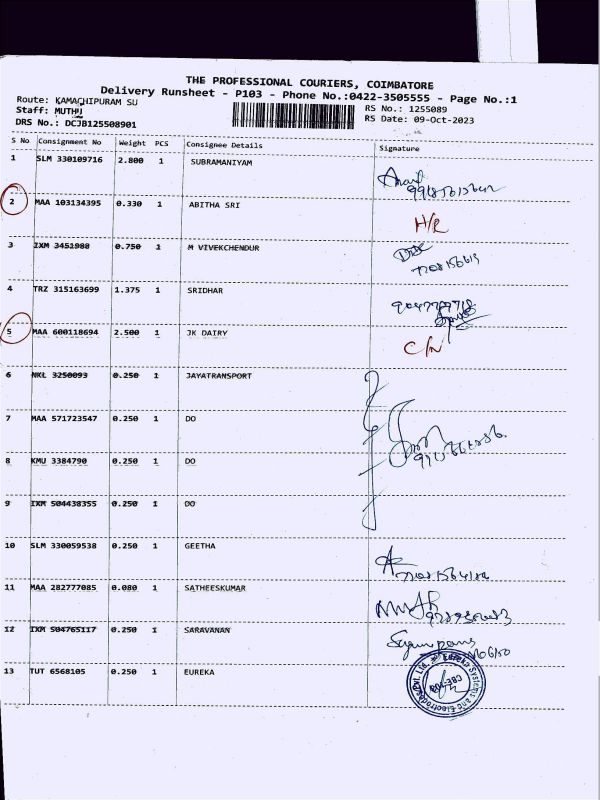 THE PROFESSIONAL COURIERS, COIMBATORE
Delivery Runsheet - P103 - Phone No.:0422-3505555 - Page No.:1
Route: KAMACHIPURAM SU
Staff: MUTHU
DRS No.: DCJB125508901
RS No.: 1255089
RS Date: 09-Oct-2023
S No Consignment No Weight PCS Consignee Details Signature
1 SLM 330109716 2.800 1 SUBRAMANIYAM
2 MAA 103134395 0.330 1 ABITHA SRI H/R
3 IXM 3451980 0.750 1 M VIVEKCHENDUR
4 TRZ 315163699 1.375 1 SRIDHAR
5 MAA 600118694 2.500 1 JK DAIRY C/N
6 NKL 3250093 0.250 1 JAYATRANSPORT
7 MAA 571723547 0.250 1 DO
8 KMU 3384790 0.250 1 DO
9 IXM 504438355 0.250 1 DO
10 SLM 330059538 0.250 1 GEETHA
11 MAA 282777085 0.080 1 SATHEESKUMAR
12 IXM 504765117 0.250 1 SARAVANAN
13 TUT 6568105 0.250 1 EUREKA